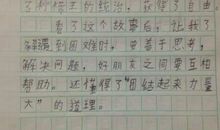 了秒惰王的统治,获得了自由。
看了这个故事后,让我了
解遇到困难时,要善于思考,
解决问题,好朋友之间要互相
帮助。还懂得了“团结起来力量
大”的道理。